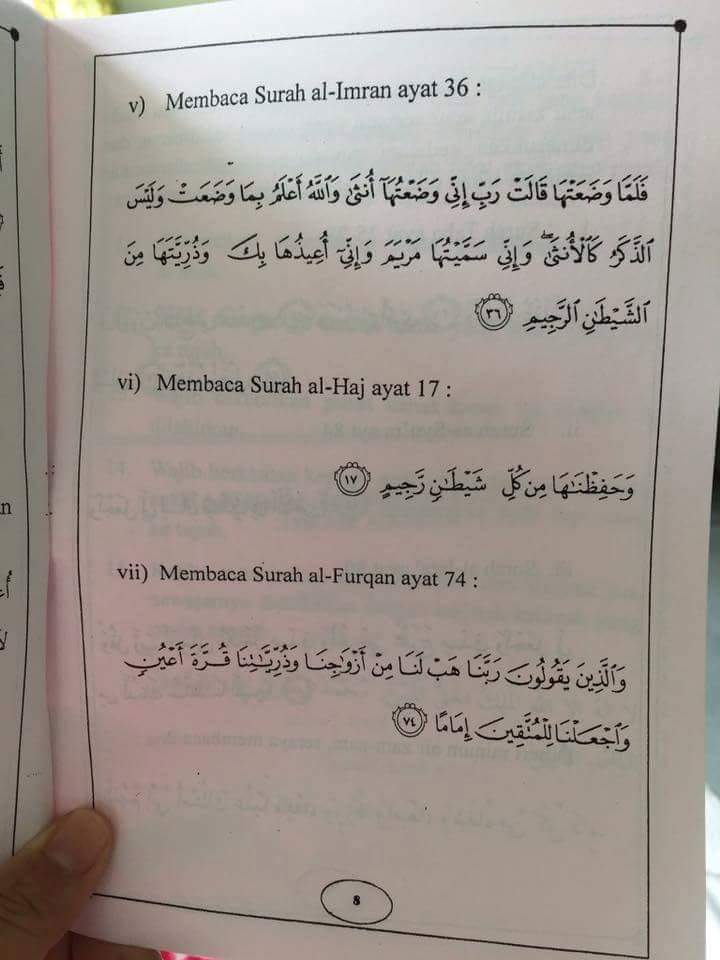 v) Membaca Surah al-Imran ayat 36 :
فَلَمَّا وَضَعَتْهَا قَالَتْ رَبِّ إِنِّي وَضَعْتُهَآ أُنثَىٰ وَٱللَّهُ أَعْلَمُ بِمَا وَضَعَتْ وَلَيْسَ
ٱلذَّكَرُ كَٱلْأُنثَىٰ ۖ وَإِنِّي سَمَّيْتُهَا مَرْيَمَ وَإِنِّيٓ أُعِيذُهَا بِكَ وَذُرِّيَّتَهَا مِنَ
ٱلشَّيْطَـٰنِ ٱلرَّجِيمِ ٣٦
vi) Membaca Surah al-Haj ayat 17 :
وَحَفِظْنَـٰهَا مِن كُلِّ شَيْطَـٰنٍ رَّجِيمٍ ١٧
vii) Membaca Surah al-Furqan ayat 74 :
وَٱلَّذِينَ يَقُولُونَ رَبَّنَا هَبْ لَنَا مِنْ أَزْوَٰجِنَا وَذُرِّيَّـٰتِنَا قُرَّةَ أَعْيُنٍ
وَٱجْعَلْنَا لِلْمُتَّقِينَ إِمَامًا ٧٤
8